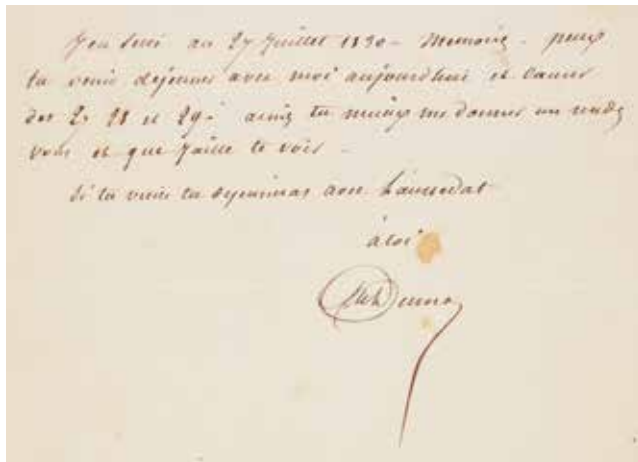 J'en suis au 27 Juillet 1830 - Memoires - peux
tu venir dejeuner avec moi aujourdhui et causer
des 27 28 et 29 - aimes tu mieux me donner un rendez
vous et que j'aille te voir -
Si tu viens tu dejeuneras avec
à toi
Dumas